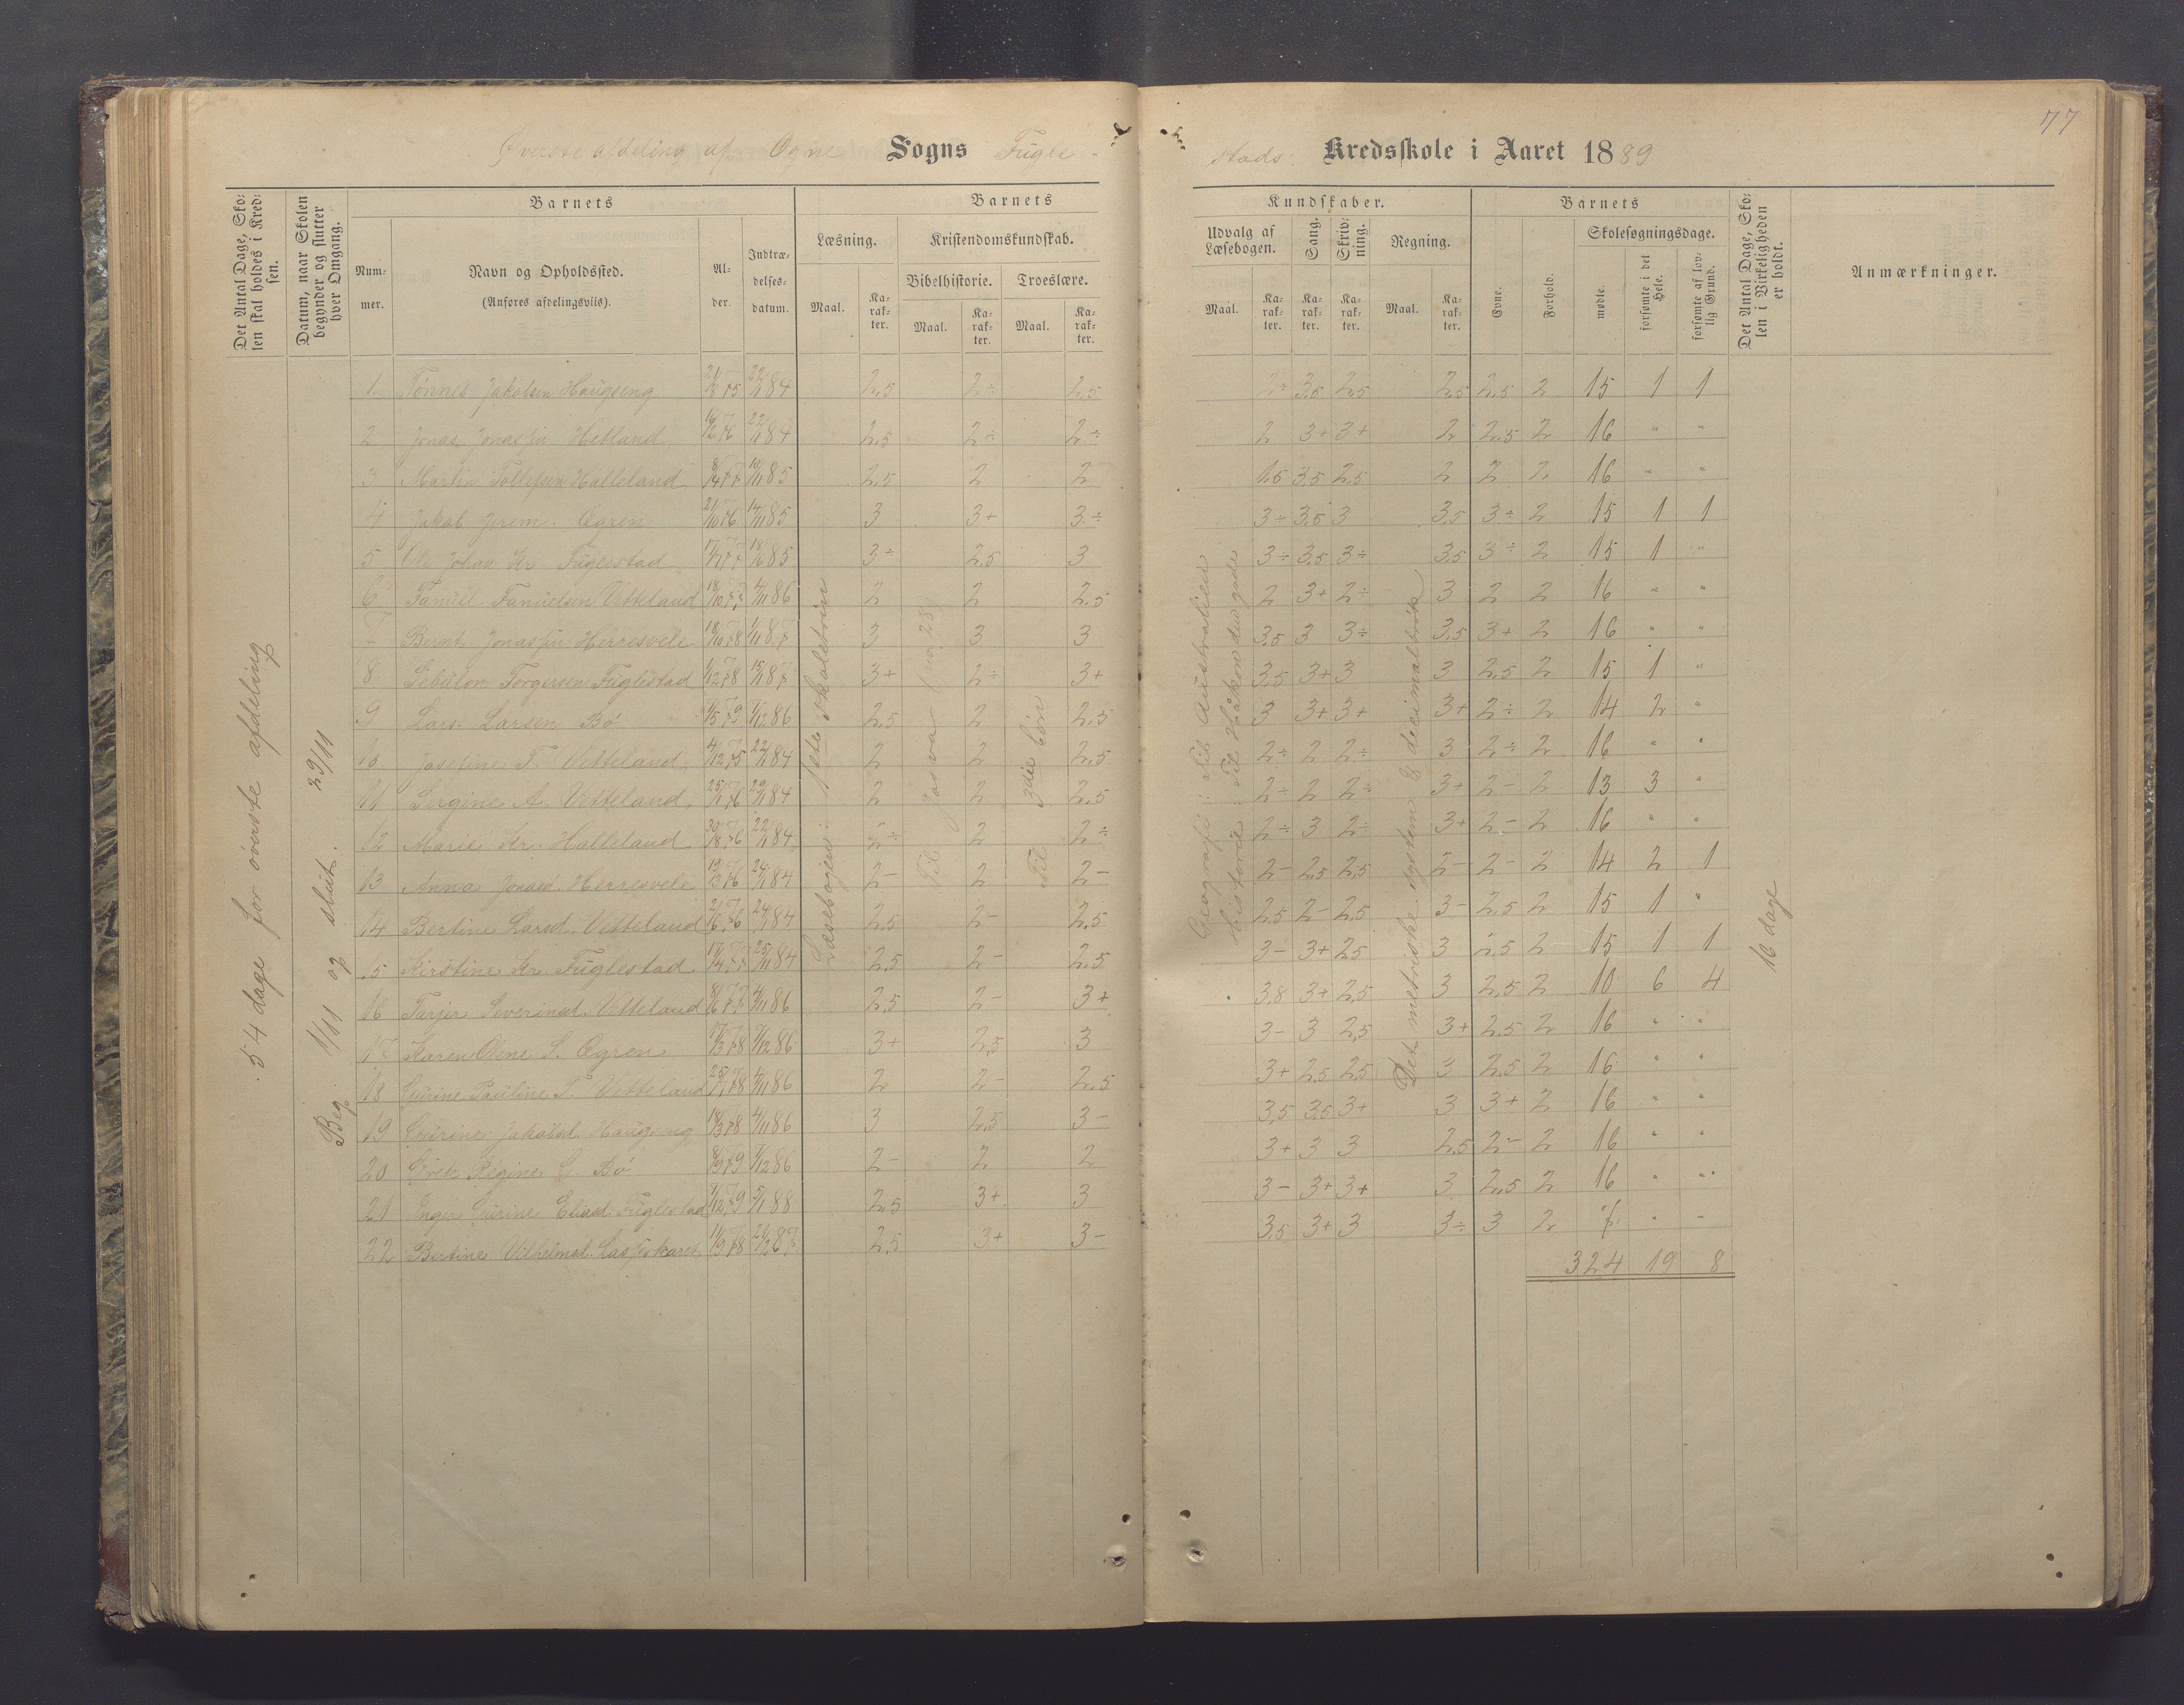 77
Øverste afdeling af Ogne Sogns Fugle-
stads Kredsskole i Aaret 1889
Det Antal Dage, Skolen skal holdes i Kredsen.
Datum, naar Skolen begynder og slutter hver Omgang.
Barnets
Nummer.
Navn og Opholdssted.
(Anføres afdelingsviis).
Alder.
Indtrædelsesdatum.
Barnets
Læsning.
Maal.
Karakter.
Kristendomskundskab.
Bibelhistorie.
Maal.
Karakter.
Troeslære.
Maal.
Karakter.
Kundskaber.
Udvalg af Læsebogen.
Maal.
Karakter.
Sang.
Karakter.
Skrivning.
Karakter.
Regning.
Maal.
Karakter.
Barnets
Evne.
Forhold.
Skolesøgningsdage.
mødte.
forsømte i det Hele.
forsømte af lovlig Grund.
Det Antal Dage, Skolen i Virkeligheden er holdt.
Anmærkninger.
54 dage for øverste afdeling
Beg. 1/11 og slut. 29/11
Læsebogen: 1ste skoletrin
Til 3die bøn
Geografi: Til Australien
Historie: Til Håkon den gode
Det metriske system & decimalbrøk
16 dage
1 Tønnes Jakobsen Haugseng 22/1 84 2,5 2÷ 2,5 2÷ 3,5 2,5 2,5 2,5 2 15 1 1
2 Jonas Jonassen Hetland 22/1 84 2,5 2÷ 2÷ 2 3+ 3+ 2 2,5 2 16 " "
3 Martin Tollefsen Halleland 8/4 77 10/11 85 2,5 2 2 1,5 3,5 2,5 2 2 2 16 " "
4 Jakob Jerem. Øgren 21/10 76 3 3+ 3÷ 3÷ 3,5 3 3,5 3÷ 2 15 1 1
5 Ole Johan Kr. Fuglestad 3÷ 2,5 3 3÷ 3,5 3÷ 3,5 3÷ 2 15 1 "
6 Tanuel Tanuelsen Vetteland 4/11 86 2 2 2,5 2 3+ 2÷ 3 2 2 16 " "
7 Bernt Jonassen Herresvele 18/10 78 1/11 87 3 3 3 3,5 3 3÷ 3,5 3+ 2 16 " "
8 Sebulon Torgersen Fuglestad 1/12 78 15/1 87 3+ 2÷ 3+ 3,5 3+ 3 3 2,5 2 15 1 "
9 Lars Larsen Bø 1/5 79 1/12 86 2,5 2 2,5 3 3+ 3+ 3+ 2÷ 2 14 2 "
10 Josefine T. Vetteland 4/12 75 22/1 84 2 2 2,5 2÷ 2 2÷ 3 2÷ 2 16 " "
11 Sergine A. Vetteland 25/1 76 29/1 84 2 2 2,5 2÷ 2 2÷ 3+ 2- 2 13 3 "
12 Marie Kr. Halleland 22/1 84 2÷ 2 2÷ 2÷ 3 2÷ 3+ 2- 2 16 " "
13 Anna Jonasd. Herresvele 24/1 84 2- 2 2- 2- 2,5 2,5 2- 2- 2 14 2 1
14 Bertine Larsd. Vetteland 24/1 84 2,5 2- 2,5 2,5 2- 2,5 3- 2,5 2 15 1 "
15 Kirstine Kr. Fuglestad 25/11 84 2,5 2- 2,5 3- 3+ 2,5 3 2,5 2 15 1 1
16 Tarjer Severinsd. Vetteland 8/6 77 4/11 86 2,5 2- 3+ 3,8 3+ 2,5 3 2,5 2 10 6 4
17 Karen Oline S. Øgren 17/3 78 7/12 86 3+ 2,5 3 3- 3 2,5 3+ 2,5 2 16 " "
18 Gurine Pauline T. Vetteland 25/7 78 4/11 86 2 2- 2,5 3+ 2,5 2,5 3 2,5 2 16 " "
19 Gurine Jakobsd. Haugseng 18/3 78 4/11 86 3 2,5 3- 3,5 3,5 3+ 3 3+ 2 16 " "
20 Regine L. Bø 8/9 79 7/12 86 2- 2 2 3+ 3 3 2,5 2- 2 16 " "
21 Inger Gurine Eliasd. Fuglestad 5/1 88 2,5 3+ 3 3- 3+ 3+ 3 2,5 2 16 " "
22 Bertine Vilhelmsd. 11/9 78 21/12 87 2,5 3+ 3- 3,5 3+ 3 3÷ 3 2 " "
324 19 8